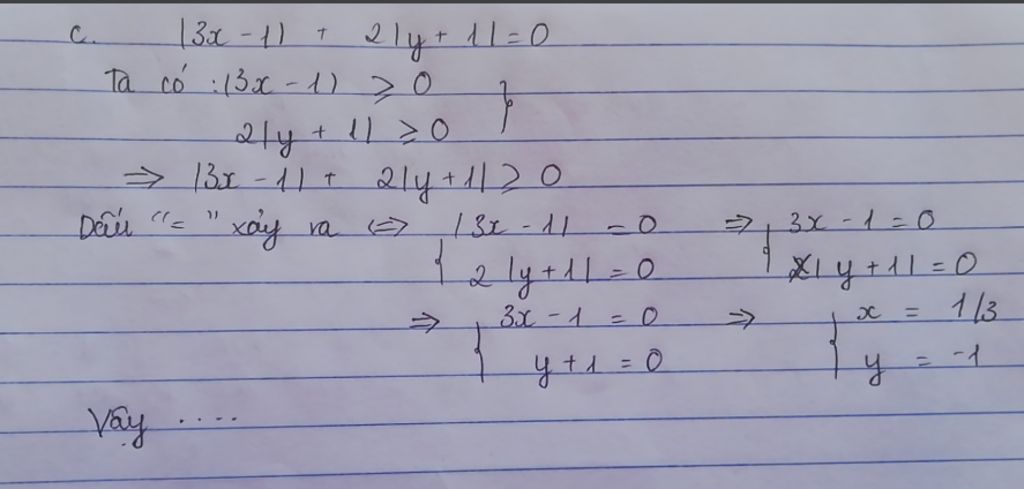 c. |3x - 1| + 2|y + 1| = 0
Ta có : |3x - 1| ⩾ 0
2|y + 1| ⩾ 0 }
⇒ |3x - 1| + 2|y + 1| ⩾ 0
Dấu "=" xảy ra ⇔ { |3x - 1| = 0 ⇒ { 3x - 1 = 0
2|y + 1| = 0 |y + 1| = 0
⇒ { 3x - 1 = 0 ⇒ { x = 1/3
y + 1 = 0 y = -1
Vậy ....